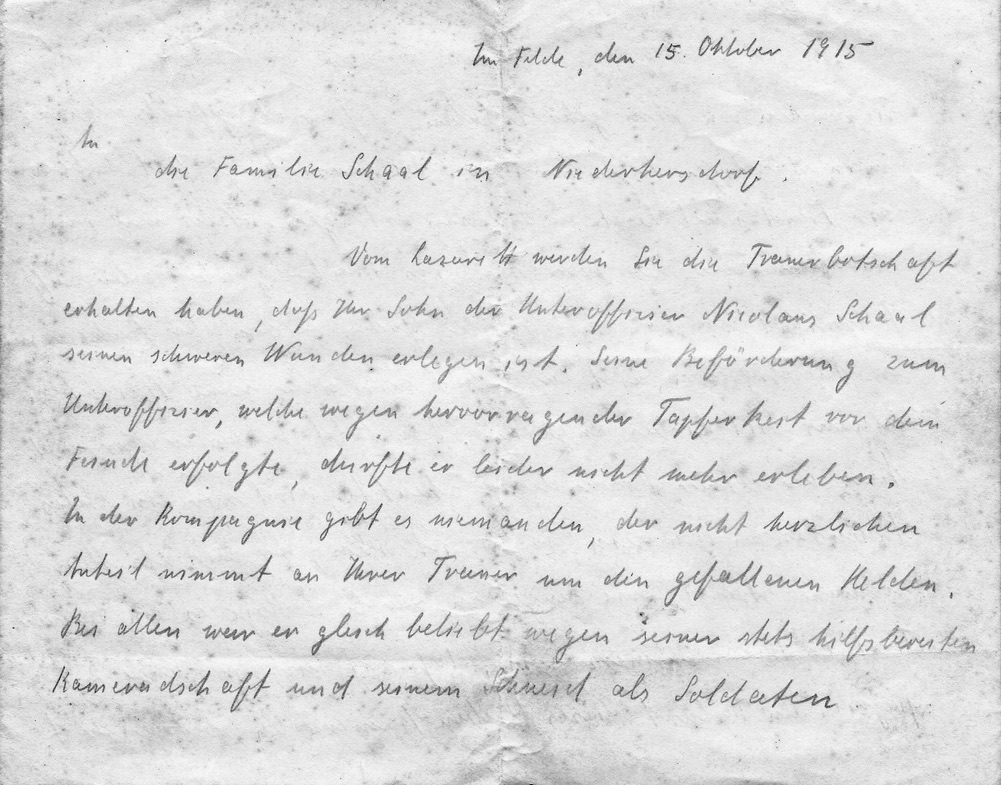 Im Felde, den 15. Oktober 1915
An
die Familie Schaal in
Vom Lazarett werden Sie die Trauerbotschaft
erhalten haben, daß Ihr Sohn der Unteroffizier Nicolaus Schaal
seinen schweren Wunden erlegen ist. Seine Beförderung zum
Unteroffizier, welche wegen hervorragender Tapferkeit vor dem
Feinde erfolgte, durfte er leider nicht mehr erleben.
In der Kompagnie gibt es niemanden, der nicht herzlichen
Anteil nimmt an Ihrer Trauer um den gefallenen Helden.
Bei allen war er gleich beliebt wegen seiner stets hilfsbereiten
Kameradschaft und seinem Schneid als Soldaten